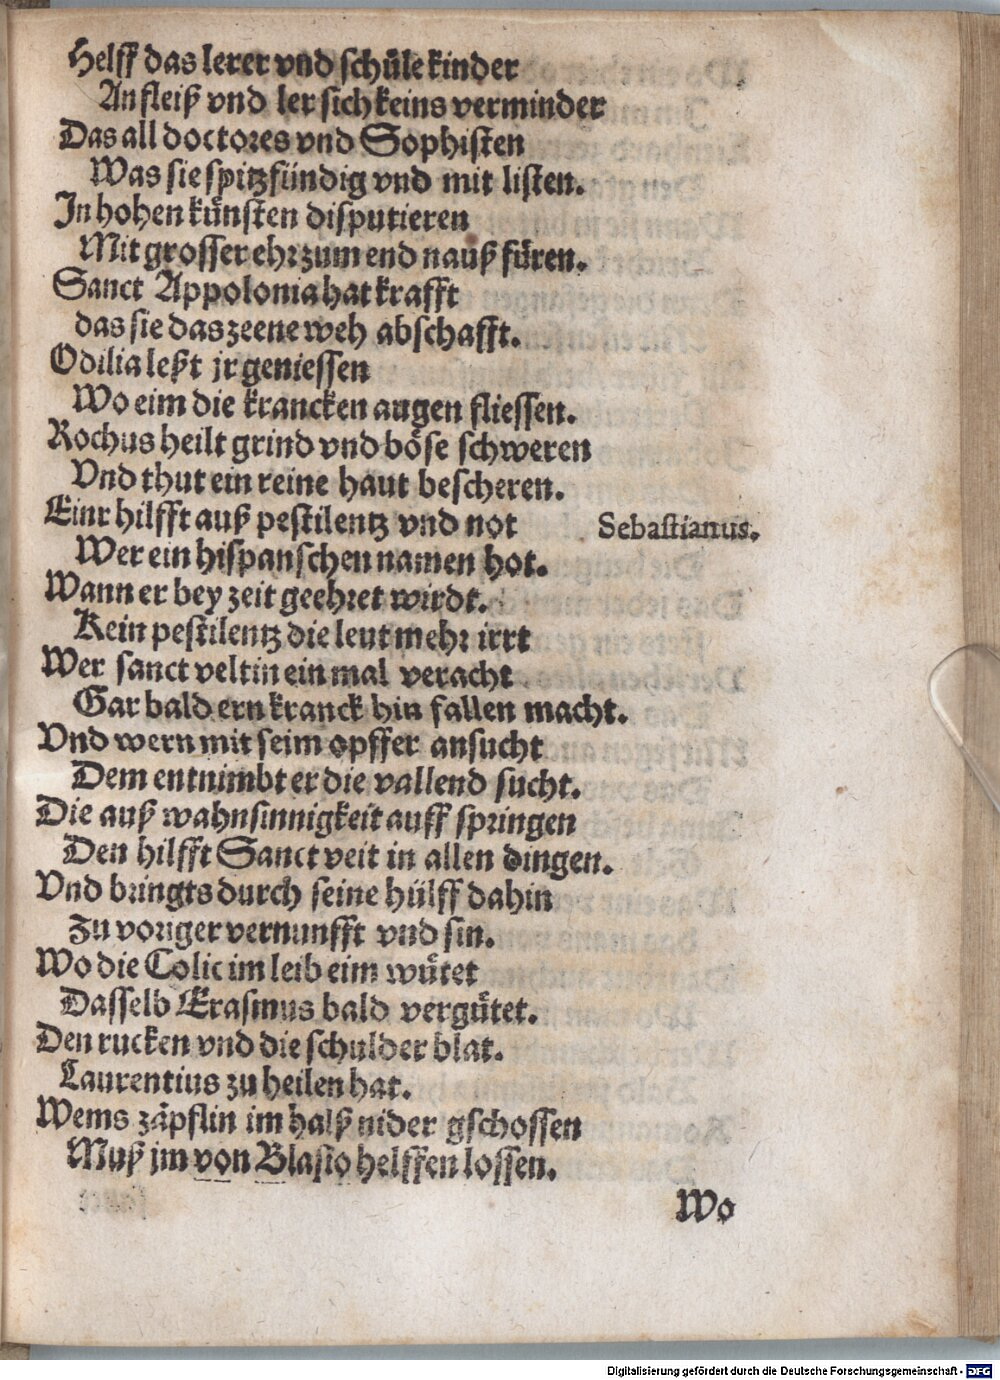 Helff das lerer vnd schůle kinder
An fleiß vnd ler sich keins verminder
Das all doctores vnd Sophisten
Was sie spitzfündig vnd mit listen.
In hohen künsten disputieren
Mit grosser ehr zum end nauß füren.
Sanct Appolonia hat krafft
das sie das zeene weh abschafft.
Odilia leßt jr geniessen
Wo eim die krancken augen fliessen.
Rochus heilt grind vnd böse schweren
Vnd thut ein reine haut bescheren.
Einr hilfft auß pestilentz vnd not
Sebastianus.
Wer ein hispanschen namen hot.
Wann er bey zeit geehret wirdt.
Kein pestilentz die leut mehr irrt
Wer sanct veltin ein mal veracht
Gar bald ern kranck hin fallen macht.
Vnd wern mit seim opffer ansucht
Dem entnimbt er die vallend sucht.
Die auß wahnsinnigkeit auff springen
Den hilfft Sanct veit in allen dingen.
Vnd bringts durch seine hülff dahin
Zu voriger vernunfft vnd sin.
Wo die Colic im leib eim wütet
Dasselb Erasmus bald vergütet.
Den rucken vnd die schulder blat.
Laurentius zu heilen hat.
Wems zäpflin im halß nider gschossen
Muß jm von Blasio helffen lossen.
Wo
Digitalisierung gefördert durch die Deutsche Forschungsgemeinschaft - DFG